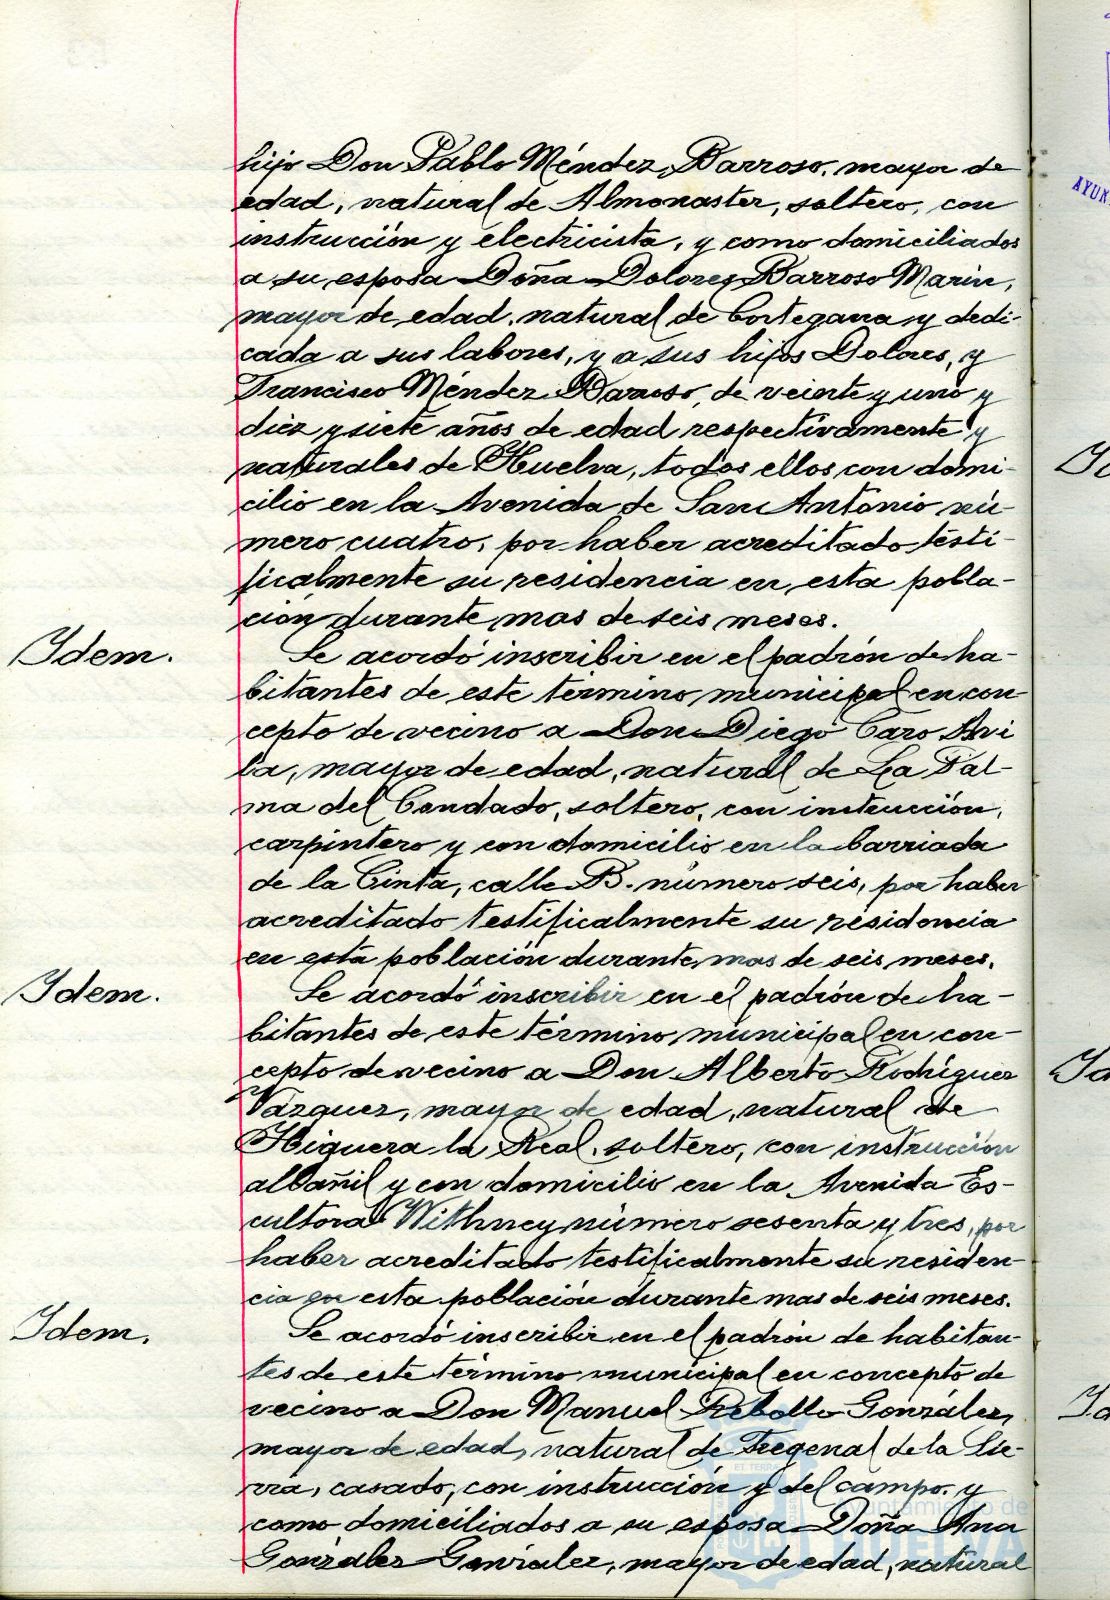 hijo Don Pablo Méndez Barroso, mayor de
edad, natural de Almonaster, soltero, con
instrucción y electricista, y como domiciliados
a su esposa Doña Dolores Barroso Marin,
mayor de edad, natural de Cortegana y dedi-
cada a sus labores, y a sus hijos Dolores, y
Francisco Méndez Barroso, de veinte y uno y
diez y siete años de edad respectivamente y
naturales de Huelva, todos ellos con domi-
cilio en la Avenida de San Antonio nú-
mero cuatro, por haber acreditado testi-
ficalmente su residencia en esta pobla-
ción durante mas de seis meses.
Idem.
Se acordó inscribir en el padrón de ha-
bitantes de este término municipal en con
cepto de vecino a Don Diego Caro Avi
la, mayor de edad, natural de La Pal-
ma del Condado, soltero, con instrucción,
carpintero y con domicilio en la barriada
de la Cinta, calle B. número seis, por haber
acreditado testificalmente su residencia
en esta población durante mas de seis meses.
Idem.
Se acordó inscribir en el padrón de ha-
bitantes de este término municipal en con-
cepto de vecino a Don Alberto Rodríguez
Vázquez, mayor de edad, natural de
Higuera la Real, soltero, con instrucción
albañil y con domicilio en la Avenida Es-
cultora Withney número sesenta y tres, por
haber acreditado testificalmente su residen-
cia en esta población durante mas de seis meses.
Idem.
Se acordó inscribir en el padrón de habitan-
tes de este término municipal en concepto de
vecino a Don Manuel Rebollo González,
mayor de edad, natural de Fregenal de la Sie-
rra, casado, con instrucción y del campo, y
como domiciliados a su esposa Doña Ana
González González, mayor de edad, natural
Ayuntamiento de
HUELVA